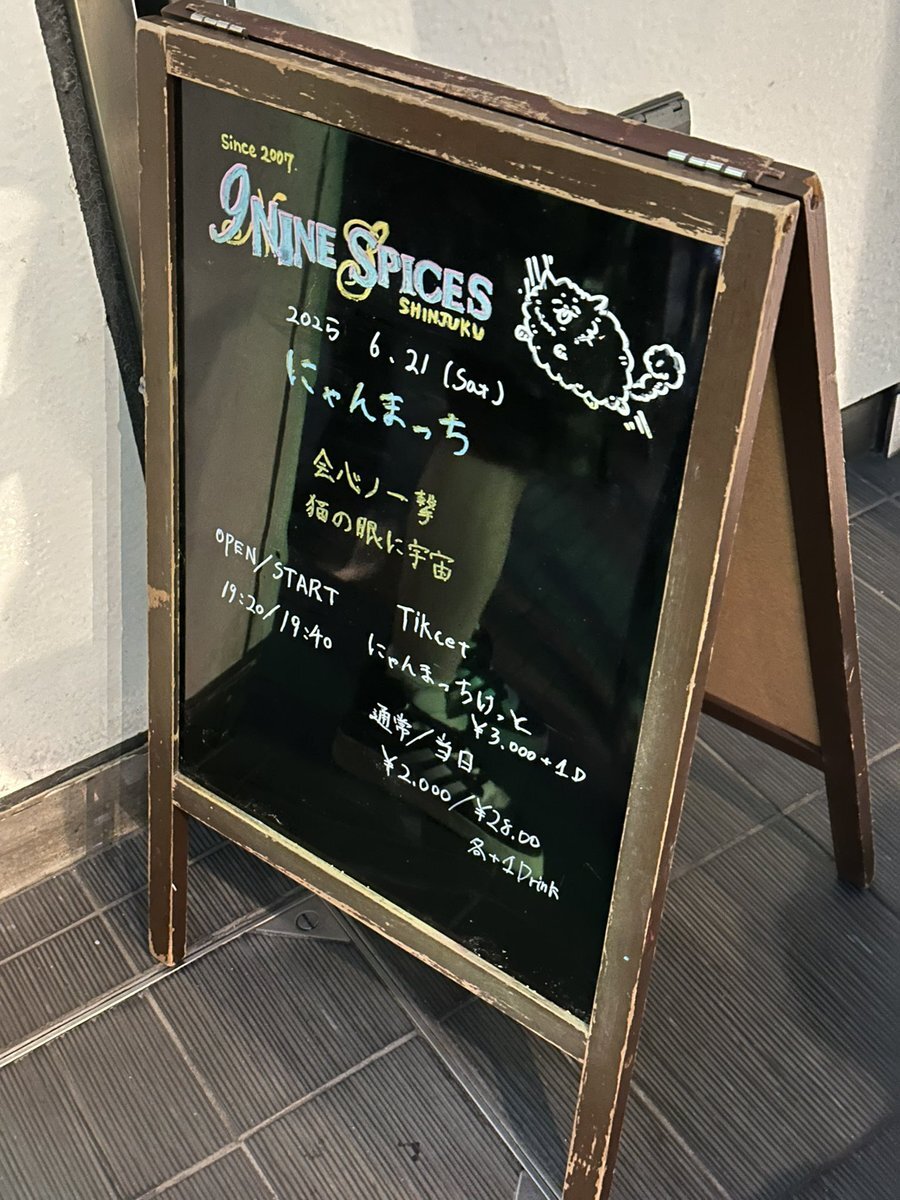 Since 2007.
9 NINE SPICES
SHINJUKU
2025 6.21 (Sat)
にゃんまっち
会心ノ一撃
猫の眼に宇宙
OPEN/START
19:20/19:40
Tikcet
にゃんまっちけっと
¥3.000+1D
通常/当日
¥2.000/¥28.00
各+1Drink